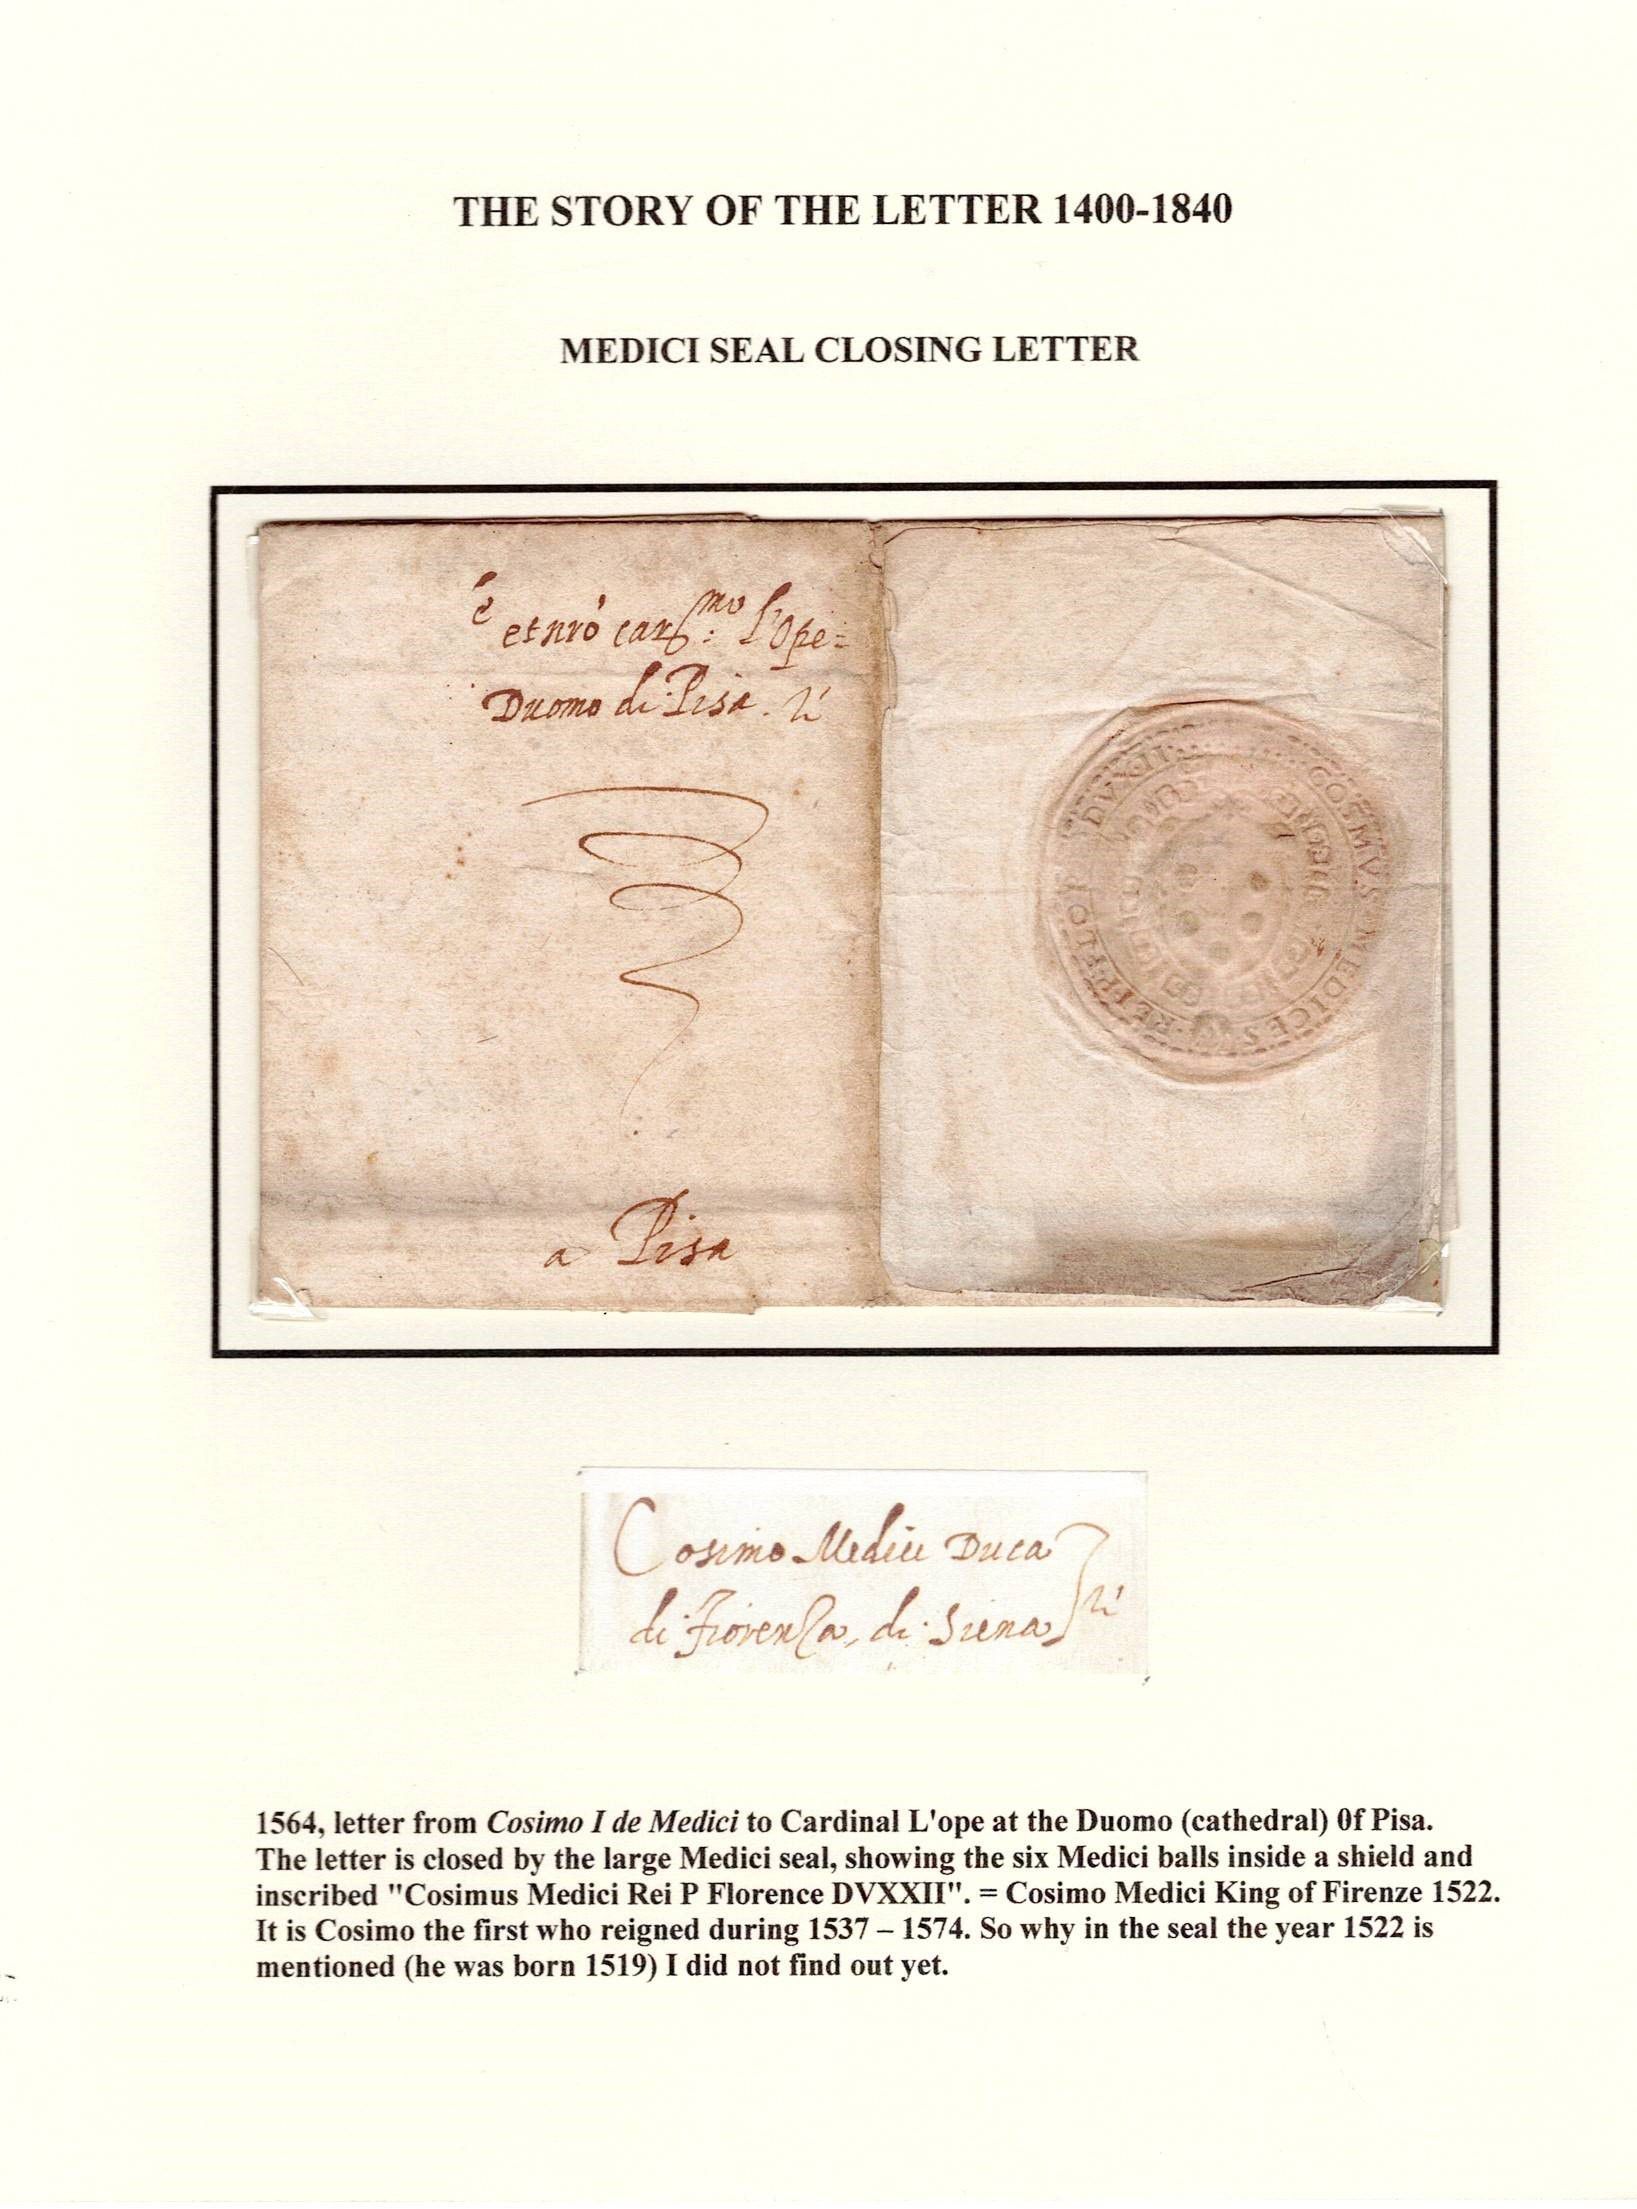 THE STORY OF THE LETTER 1400-1840
MEDICI SEAL CLOSING LETTER
et nrõ car mo L'Ope=
Duomo di Pisa.
a Pisa
COSMVS MEDICES REIP FLOR DVX II
Cosimo Medici Duca
di Fiorenza, di Siena
1564, letter from Cosimo I de Medici to Cardinal L'ope at the Duomo (cathedral) 0f Pisa.
The letter is closed by the large Medici seal, showing the six Medici balls inside a shield and
inscribed "Cosimus Medici Rei P Florence DVXXII". = Cosimo Medici King of Firenze 1522.
It is Cosimo the first who reigned during 1537 – 1574. So why in the seal the year 1522 is
mentioned (he was born 1519) I did not find out yet.